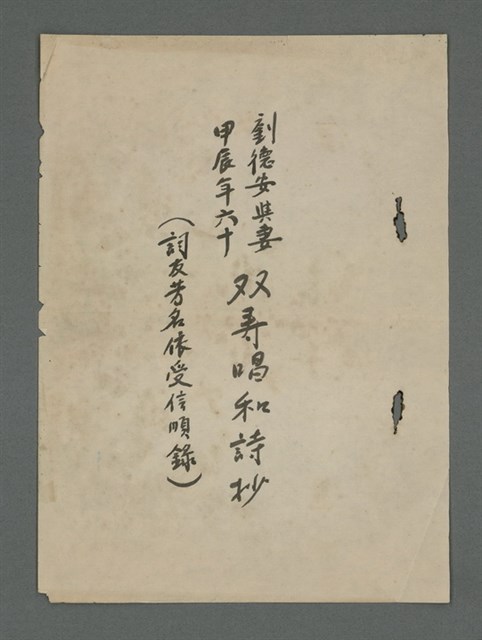 劉德安與妻
甲辰年六十
双寿唱和詩抄
（詞友芳名依受信順錄）